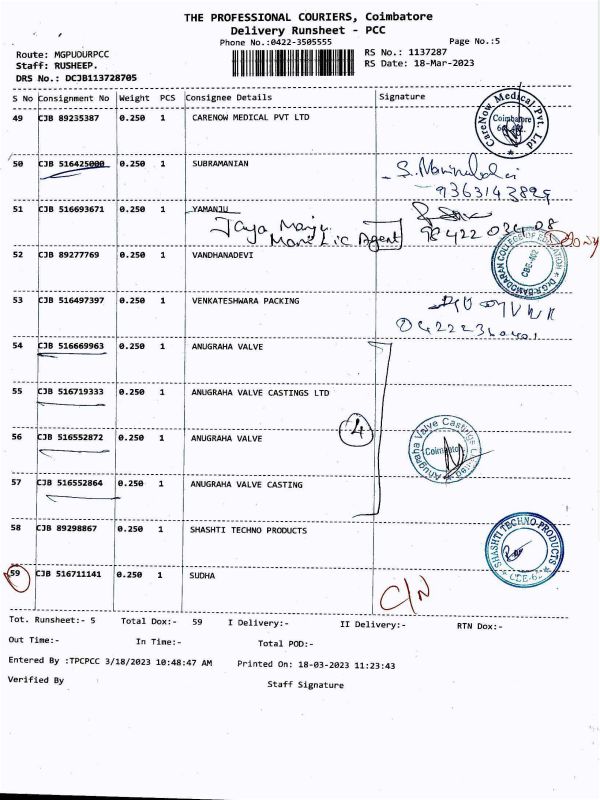 THE PROFESSIONAL COURIERS, Coimbatore
Delivery Runsheet - PCC
Phone No.:0422-3505555
Page No.:5
Route: MGPUDURPCC
RS No.: 1137287
Staff: RUSHEEP.
RS Date: 18-Mar-2023
DRS No.: DCJB113728705
S No Consignment No Weight PCS Consignee Details Signature
49 CJB 89235387 0.250 1 CARENOW MEDICAL PVT LTD
CareNow Medical Pvt. Ltd
Coimbatore
50 CJB 516425000 0.250 1 SUBRAMANIAN
9363143829
51 CJB 516693671 0.250 1 YAMANJU
Jaya Manju
Mane Lic Agent
52 CJB 89277769 0.250 1 VANDHANADEVI
Dr.G.R.DAMODARAN COLLEGE OF EDUCATION
CBE-402
53 CJB 516497397 0.250 1 VENKATESHWARA PACKING
54 CJB 516669963 0.250 1 ANUGRAHA VALVE
55 CJB 516719333 0.250 1 ANUGRAHA VALVE CASTINGS LTD
4
56 CJB 516552872 0.250 1 ANUGRAHA VALVE
Anugraha Valve Castings Limited
57 CJB 516552864 0.250 1 ANUGRAHA VALVE CASTING
58 CJB 89298867 0.250 1 SHASHTI TECHNO PRODUCTS
SHASHTI TECHNO PRODUCTS
59 CJB 516711141 0.250 1 SUDHA
C/N
Tot. Runsheet:- 5 Total Dox:- 59 I Delivery:- II Delivery:- RTN Dox:-
Out Time:- In Time:- Total POD:-
Entered By :TPCPCC 3/18/2023 10:48:47 AM Printed On: 18-03-2023 11:23:43
Verified By Staff Signature